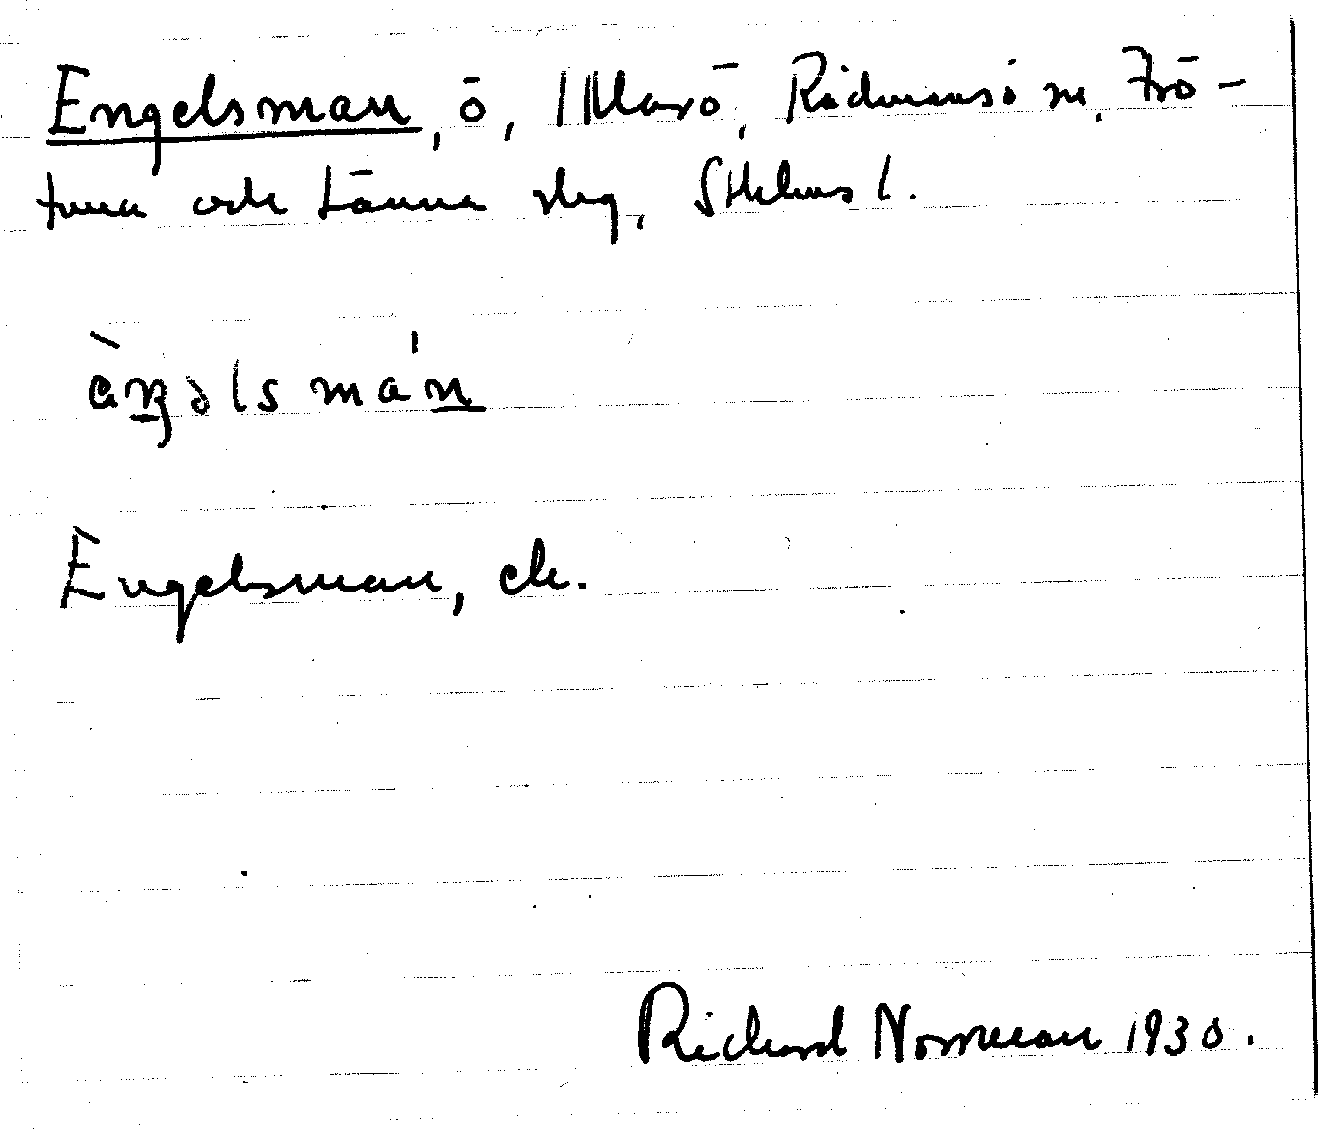 Engelsman, ö, i Klarö, Rådmansö sn, Frö-
tuna och Länna skg, Sthlms l.
èŋəlsmán
Engelsman, ek.
Richard Norrman 1930.